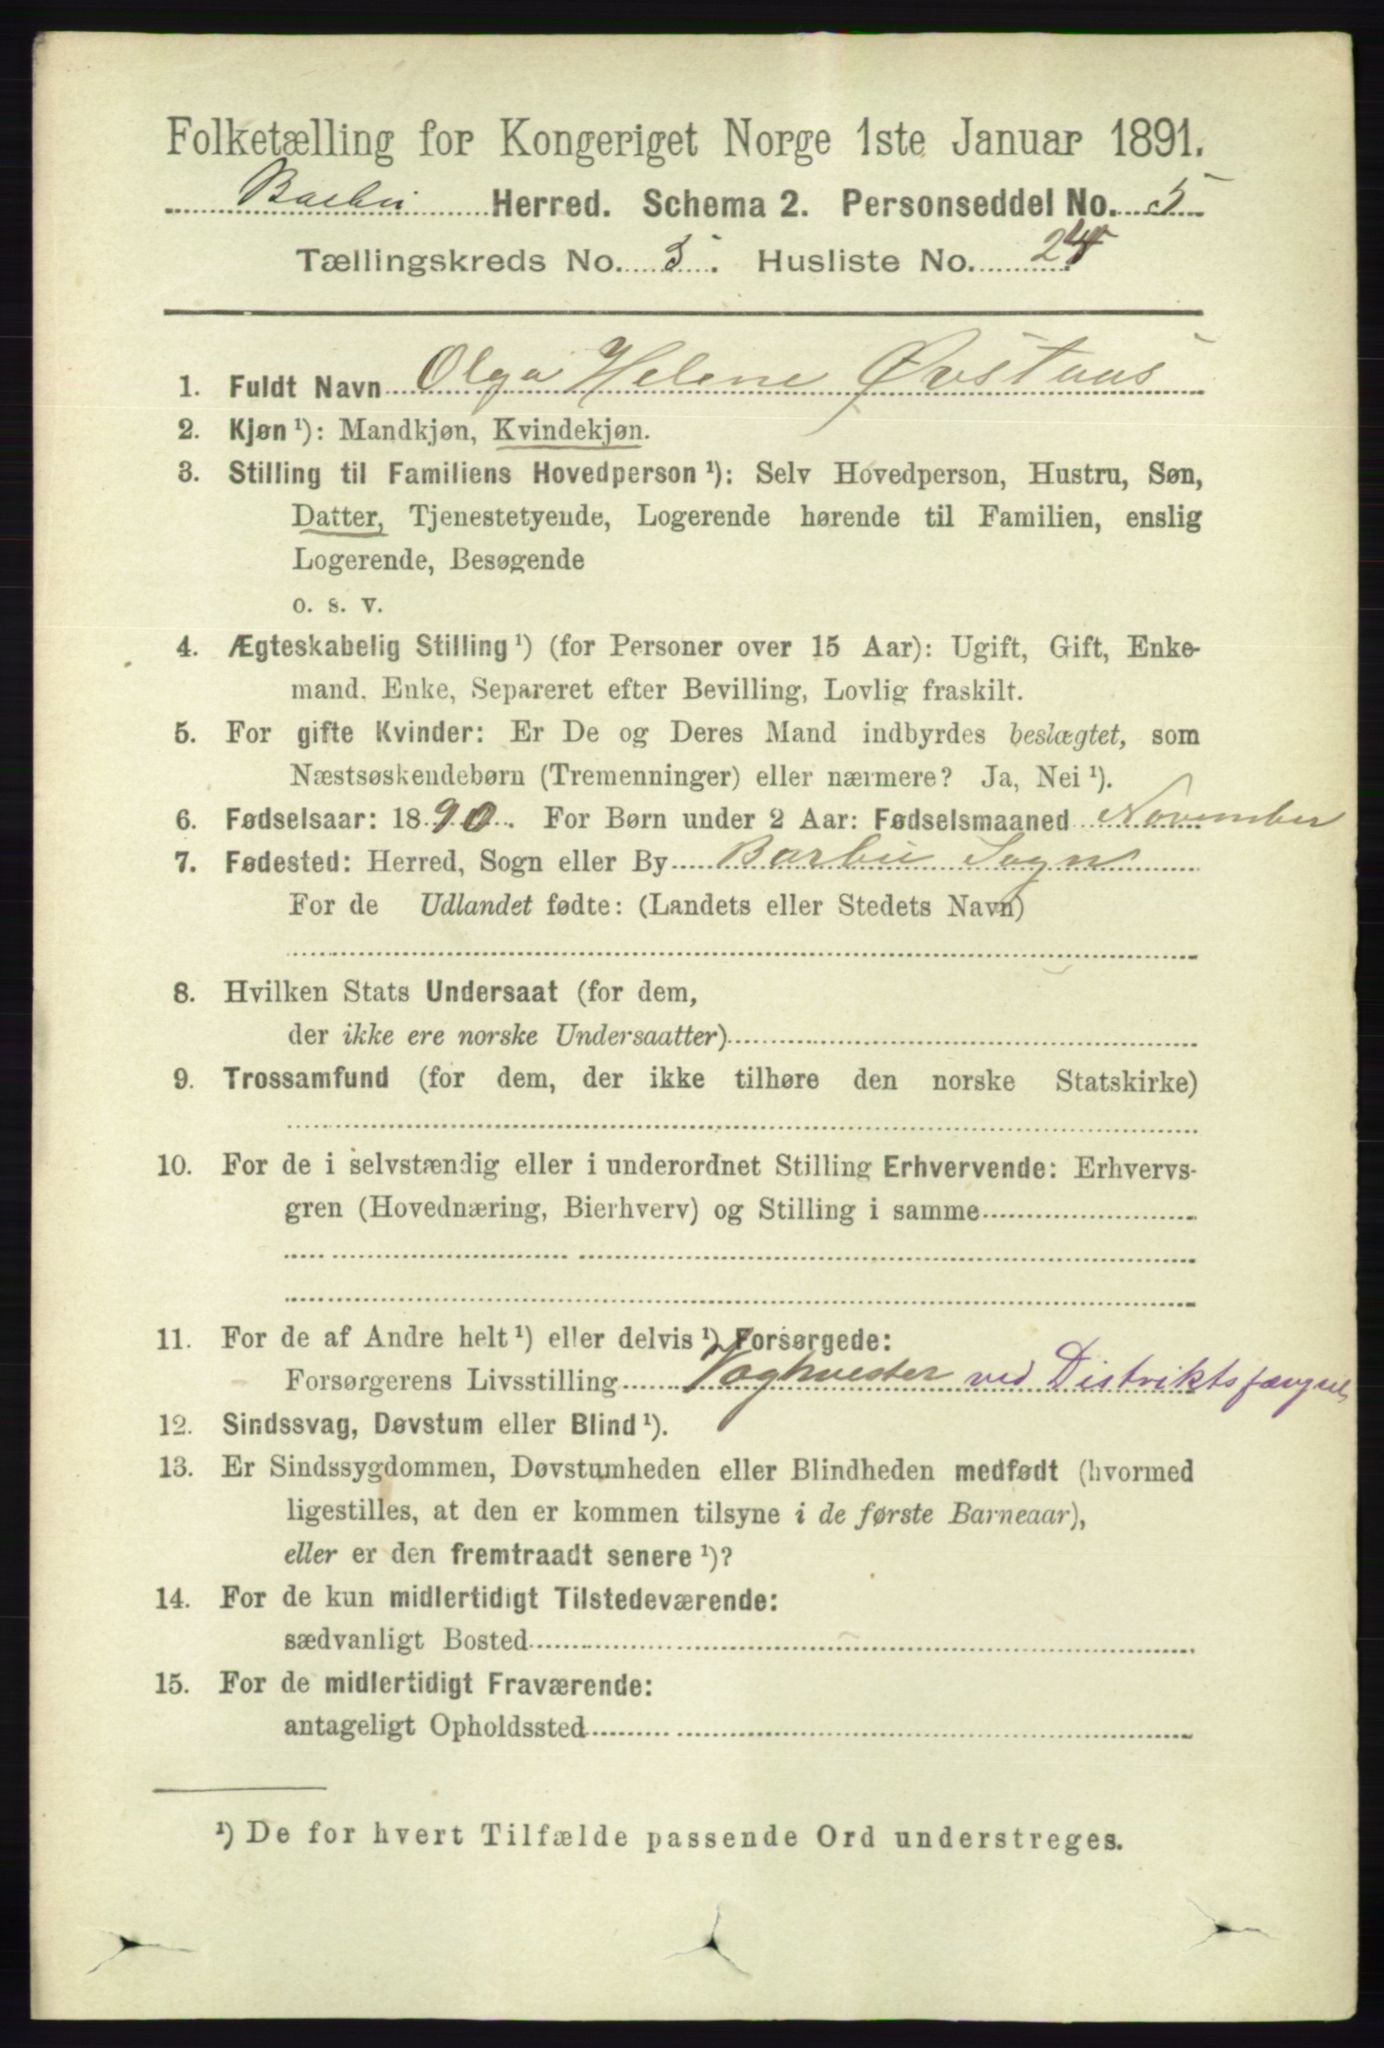 Folketælling for Kongeriget Norge 1ste Januar 1891.
Barbu Herred. Schema 2. Personseddel No. 5
Tællingskreds No. 3. Husliste No. 24
1. Fuldt Navn Olga Helene Øvstaus
2. Kjøn ¹): Mandkjøn, Kvindekjøn.
3. Stilling til Familiens Hovedperson ¹): Selv Hovedperson, Hustru, Søn,
Datter, Tjenestetyende, Logerende hørende til Familien, enslig
Logerende, Besøgende
o. s. v.
4. Ægteskabelig Stilling ¹) (for Personer over 15 Aar): Ugift, Gift, Enke-
mand, Enke, Separeret efter Bevilling, Lovlig fraskilt.
5. For gifte Kvinder: Er De og Deres Mand indbyrdes beslægtet, som
Næstsøskendebørn (Tremenninger) eller nærmere? Ja, Nei ¹).
6. Fødselsaar: 1890. For Børn under 2 Aar: Fødselsmaaned November
7. Fødested: Herred, Sogn eller By Barbu Sogn
For de Udlandet fødte: (Landets eller Stedets Navn)
8. Hvilken Stats Undersaat (for dem,
der ikke ere norske Undersaatter)
9. Trossamfund (for dem, der ikke tilhøre den norske Statskirke)
10. For de i selvstændig eller i underordnet Stilling Erhvervende: Erhvervs-
gren (Hovednæring, Bierhverv) og Stilling i samme
11. For de af Andre helt ¹) eller delvis ¹) Forsørgede:
Forsørgerens Livsstilling Vagtmester ved Distriktsfængsel
12. Sindssvag, Døvstum eller Blind ¹).
13. Er Sindssygdommen, Døvstumheden eller Blindheden medfødt (hvormed
ligestilles, at den er kommen tilsyne i de første Barneaar),
eller er den fremtraadt senere ¹)?
14. For de kun midlertidigt Tilstedeværende:
sædvanligt Bosted
15. For de midlertidigt Fraværende:
antageligt Opholdssted
¹) De for hvert Tilfælde passende Ord understreges.